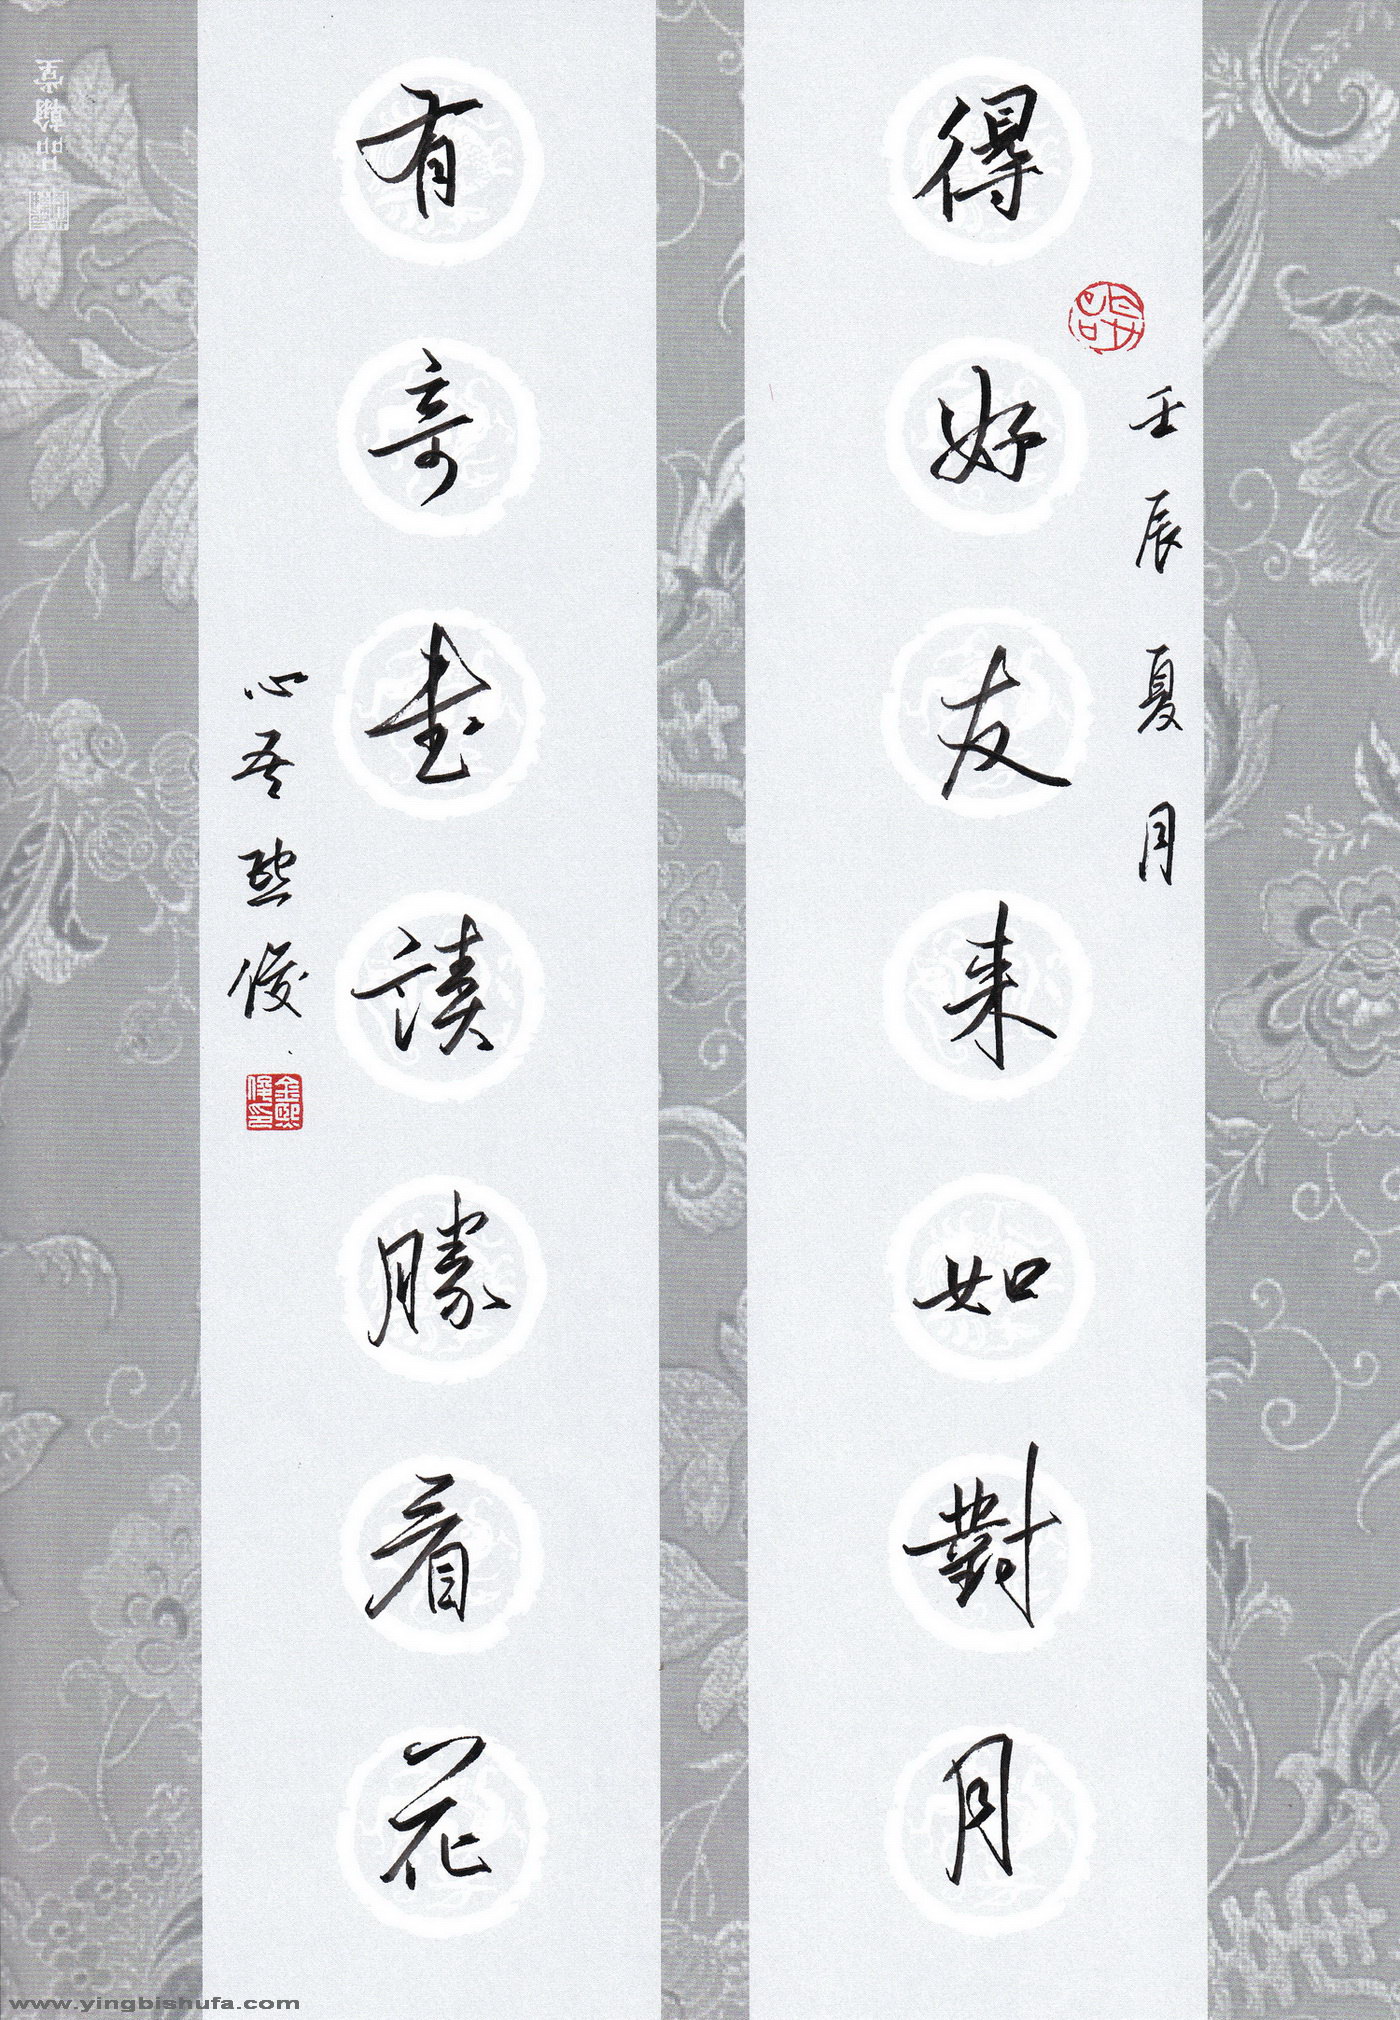 得好友来如對月
壬辰夏月
有奇書讀勝看花
心吾熙俊
金熙俊印
www.yingbishufa.com